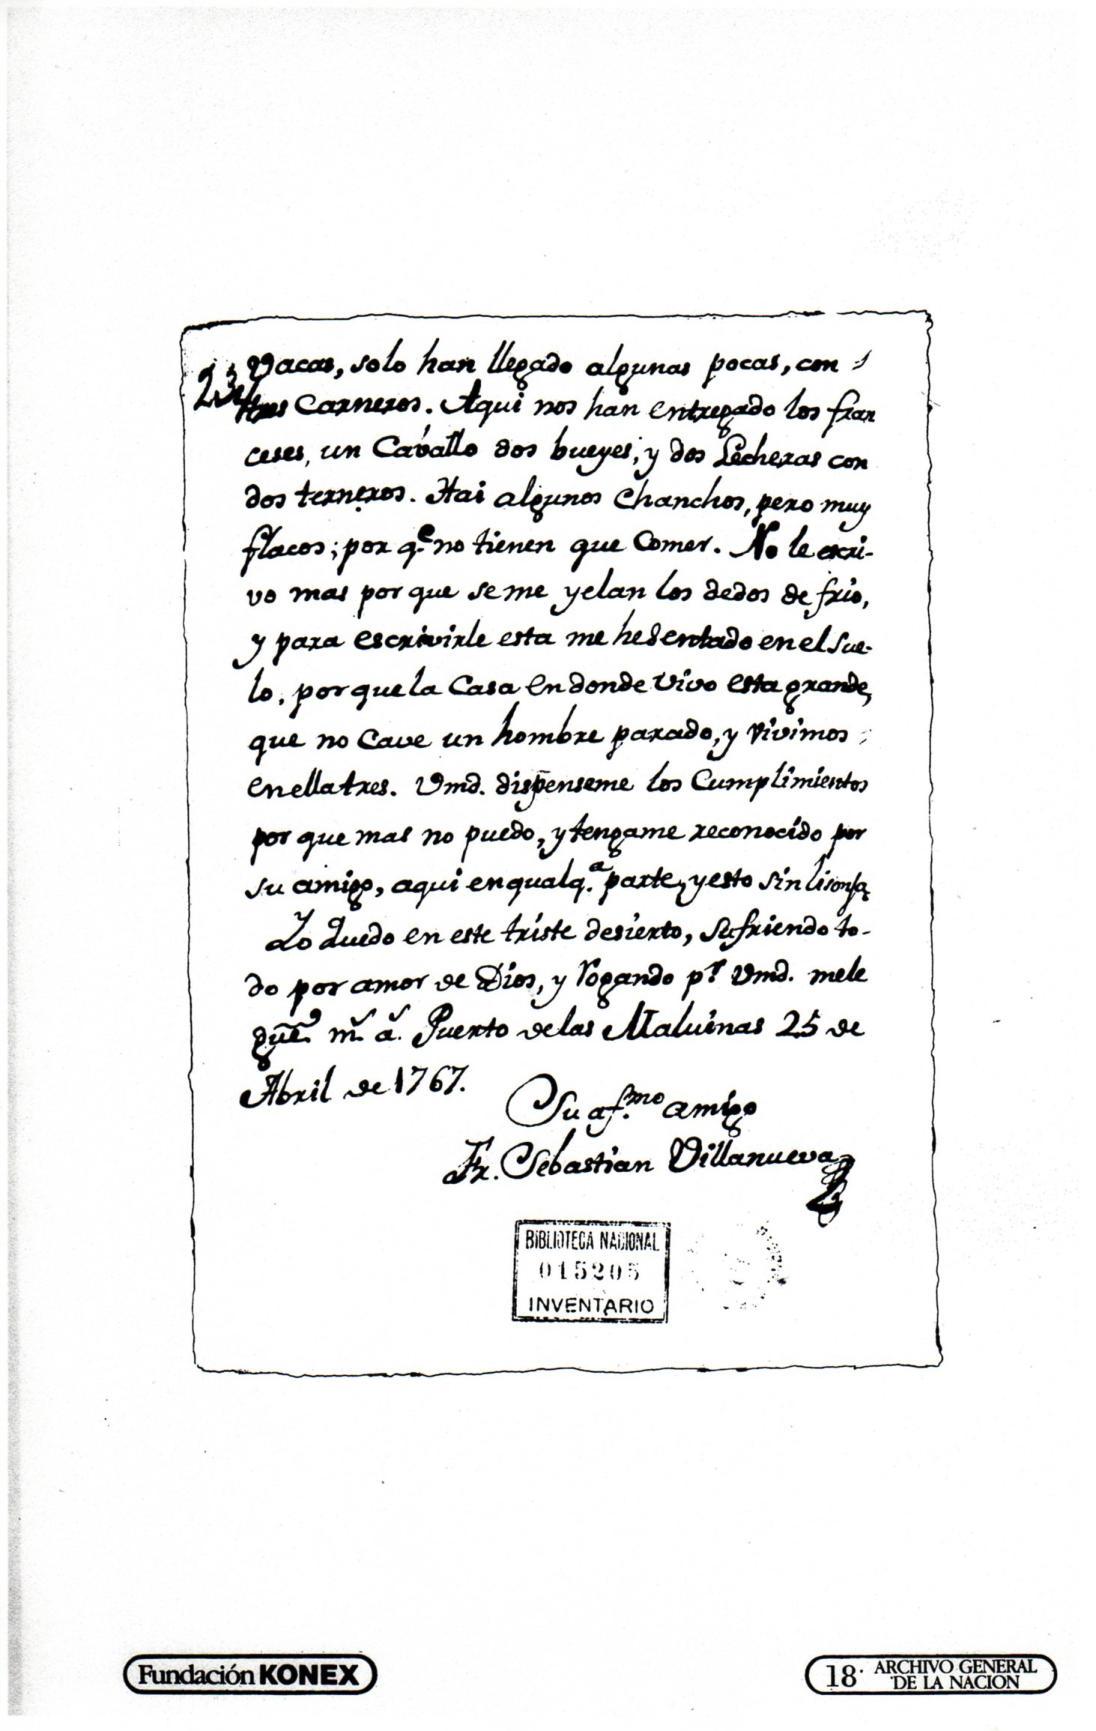 Vacas, solo han llegado algunas pocas, con
23
tres Carneros. Aqui nos han entregado los fran
ceses, un Cavallo dos bueyes, y dos Lecheras con
dos terneros. Hai algunos Chanchos, pero muy
flacos; por q.e no tienen que Comer. No le escri-
vo mas por que se me yelan los dedos de frio,
y para escrivirle esta me he sentado en el sue-
lo, por que la Casa en donde vivo esta grande,
que no Cave un hombre parado, y vivimos
en ella tres. Vmd. dispenseme los Cumplimientos
por que mas no puedo, y tengame reconocido por
su amigo, aqui en qualq.a parte, y esto sin lisonja
Yo Quedo en este triste desierto, sufriendo to-
do por amor de Dios, y rogando p.r Vmd. mele
gue. m.s a.s Puerto de las Maluinas 25 de
Abril de 1767.
Su af.mo amigo
Fr. Sebastian Villanueva
BIBLIOTECA NACIONAL
015205
INVENTARIO
Fundación KONEX
18· ARCHIVO GENERAL
DE LA NACION